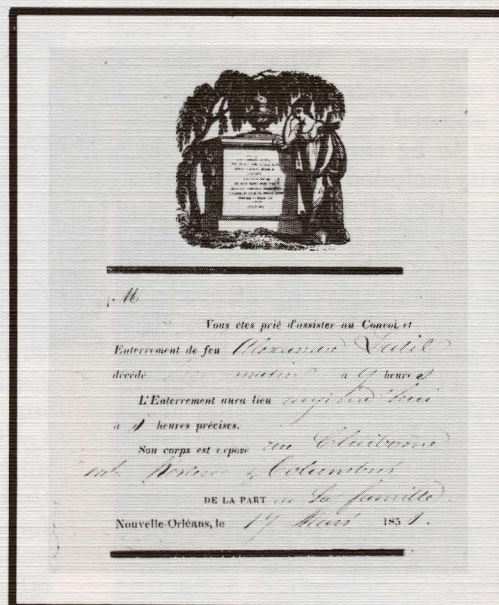 M
Vous êtes prié d'assister au Convoi et
Enterrement de feu Alexandre Latil
décédé ce matin à 9 heures
L'Enterrement aura lieu aujourd'hui
à heures précises.
Son corps est exposé rue Claiborne
entre & Columbus
DE LA PART de sa famille.
Nouvelle-Orléans, le 17 Mars 1851.